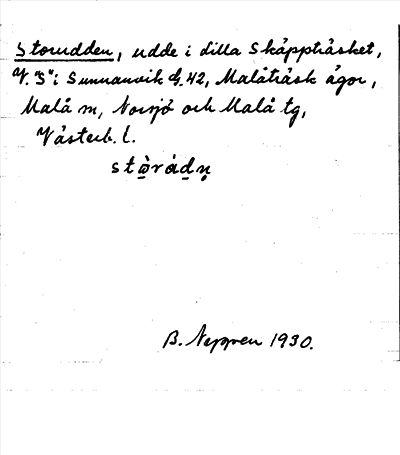 Storudden, udde i dilla Skäppträsket,
V. "S" i Sunnanvik bl. 42, Malåträsk ägor,
Malå sn, Norsjö och Malå tg,
Västerb. l.
B. Neppen 1930.